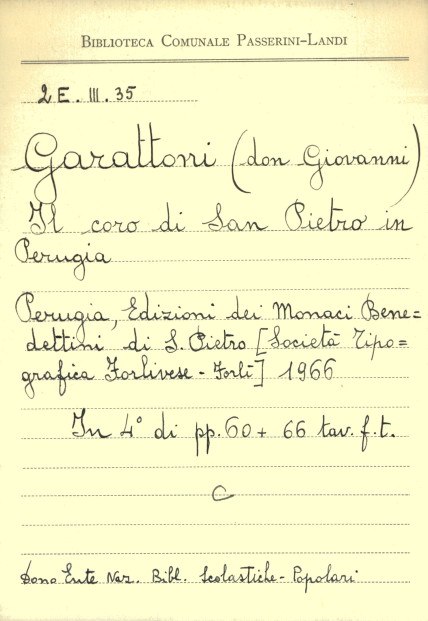 BIBLIOTECA COMUNALE PASSERINI-LANDI
2 E. III. 35
Garattoni (don Giovanni)
Il coro di San Pietro in
Perugia
Perugia, Edizioni dei Monaci Bene=
dettini di S. Pietro [Società Tipo=
grafica Forlivese - Forlì] 1966
In 4° di pp. 60 + 66 tav. f. t.
C
Dono Ente Naz. Bibl. Scolastiche-Popolari